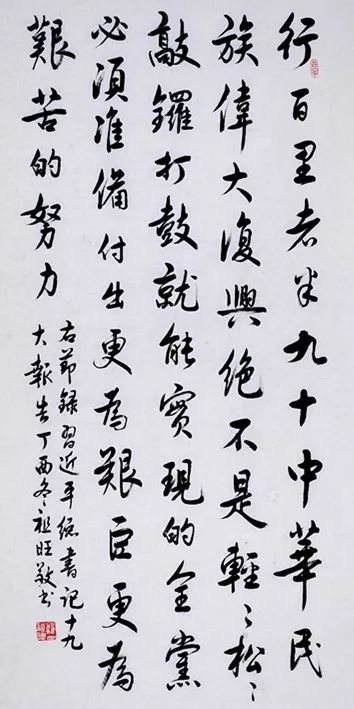 行百里者半九十中華民
族偉大復興絕不是輕輕松松
敲鑼打鼓就能實現的全黨
必須准備付出更為艱巨更為
艱苦的努力
右節錄習近平總書記十九
大報告丁酉冬祖旺敬書